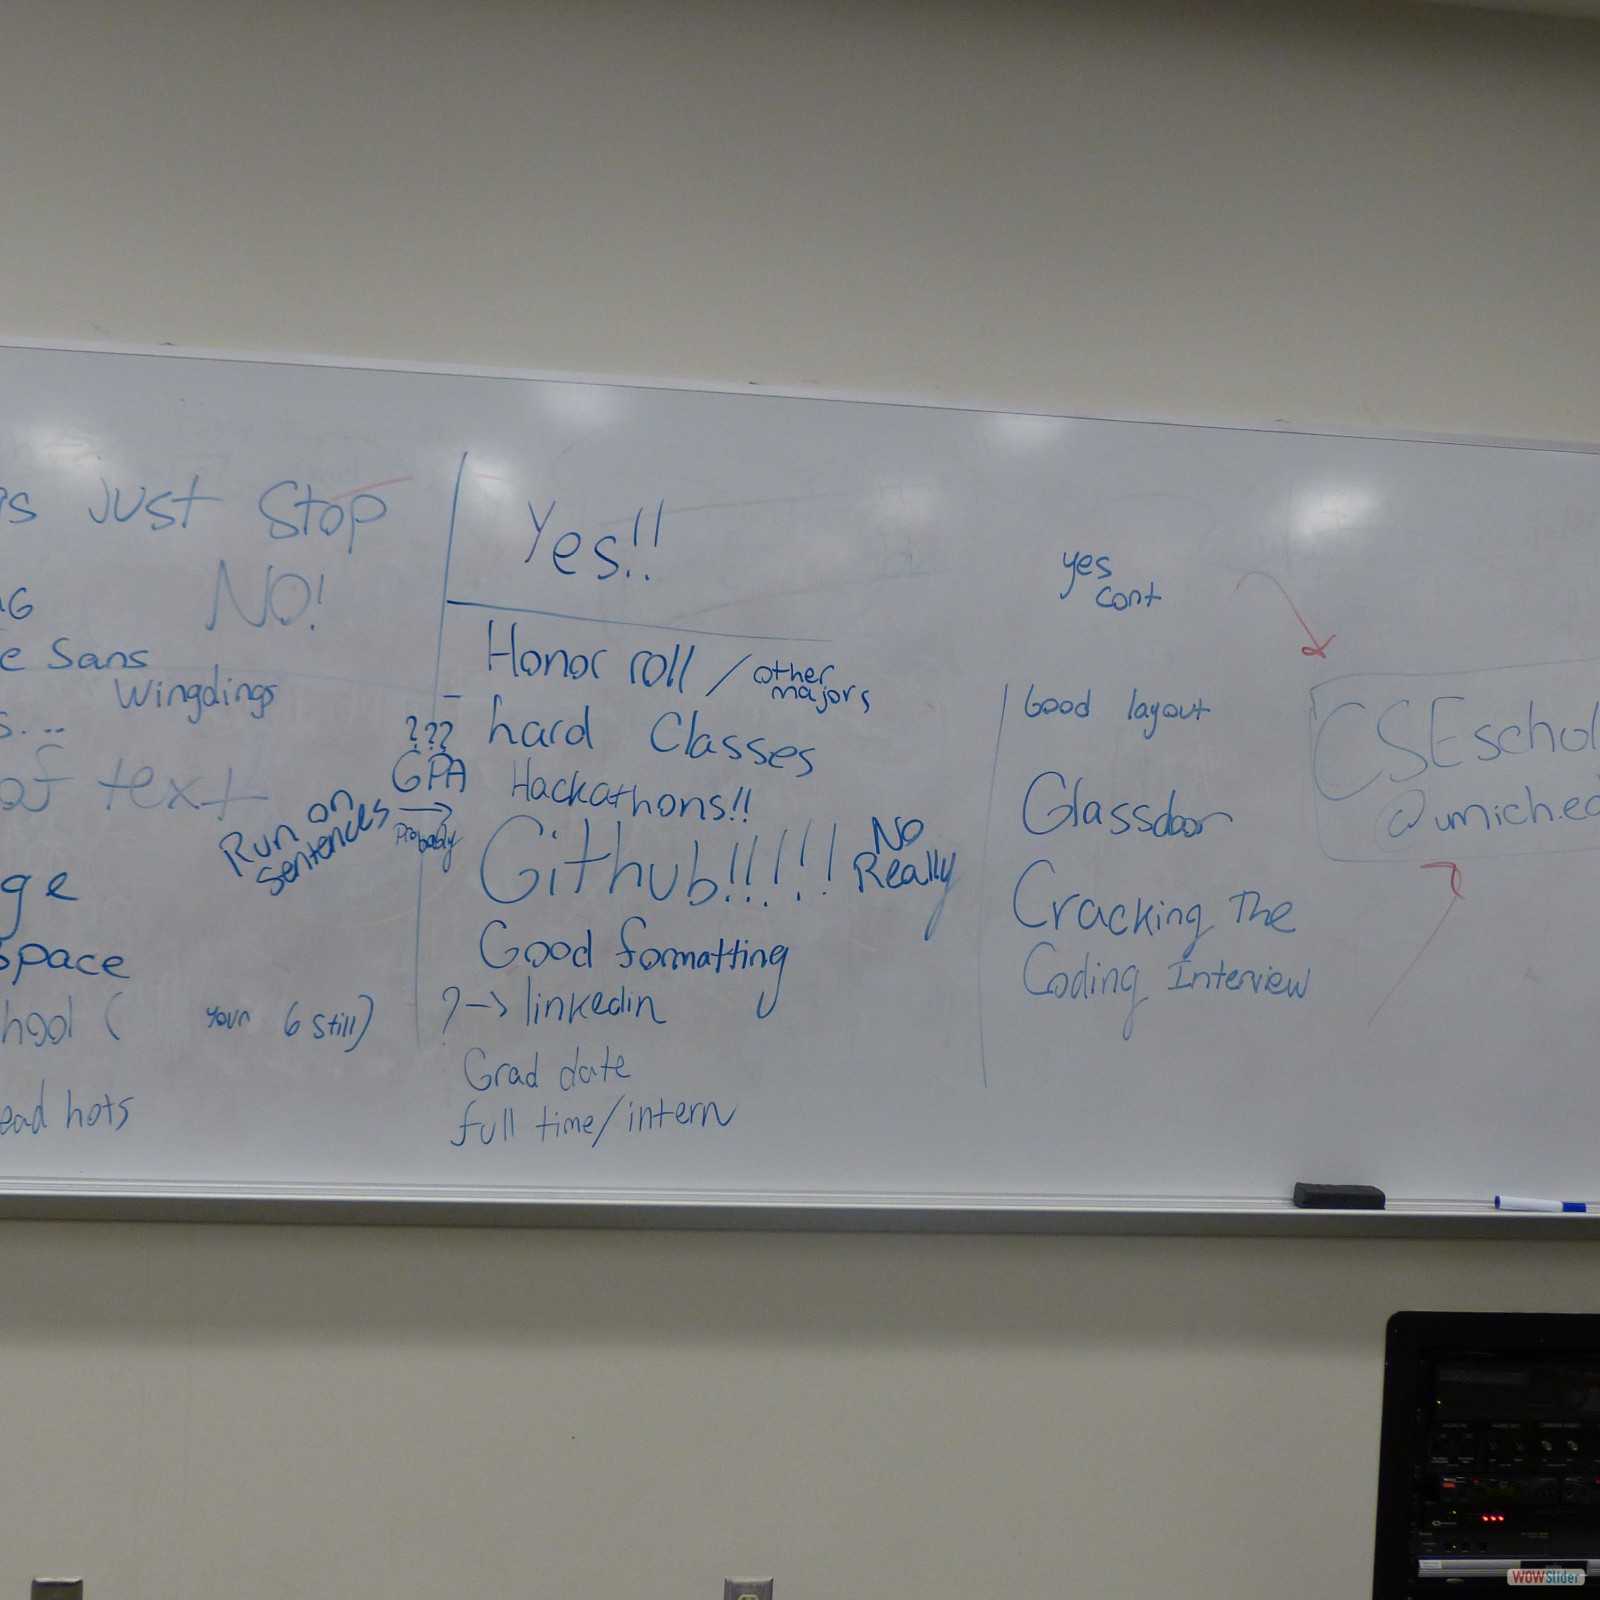 Just Stop
NO!
Sans
Wingdings
of text
Run on
sentences
space
(your 6 still)
hats
???
GPA
Probably
Yes!!
Honor roll / other
majors
hard Classes
Hackathons!!
Github!!!!!! No
Really
Good formatting
? -> linkedin
Grad date
full time/intern
yes
cont
Good layout
Glassdoor
Cracking The
Coding Interview
CSEschol
@umich.ed
WOWSlider